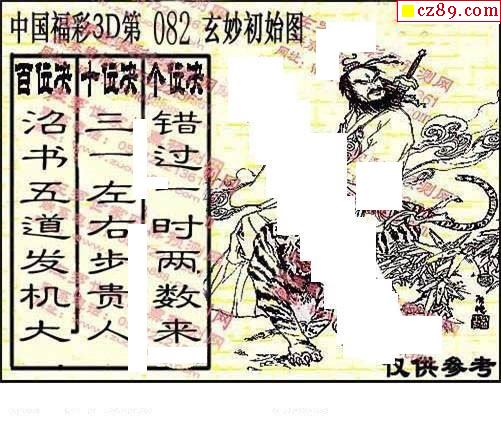 cz89.com
中国福彩3D第 082 玄妙初始图
百位决 十位决 个位决
沿书五道发机大
三一左右步贵人
错过一时两数来
仅供参考